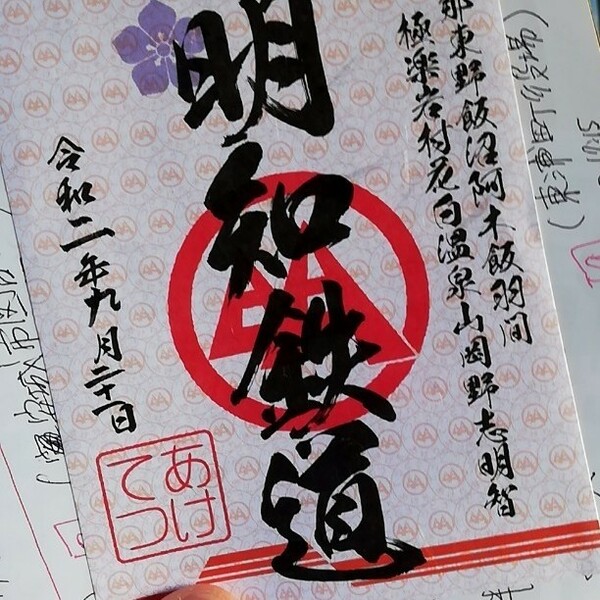 那東野飯沼阿木飯羽間
極楽岩村花白温泉山岡野志明智
明知鉄道
令和二年九月二十一日
あけ
てつ